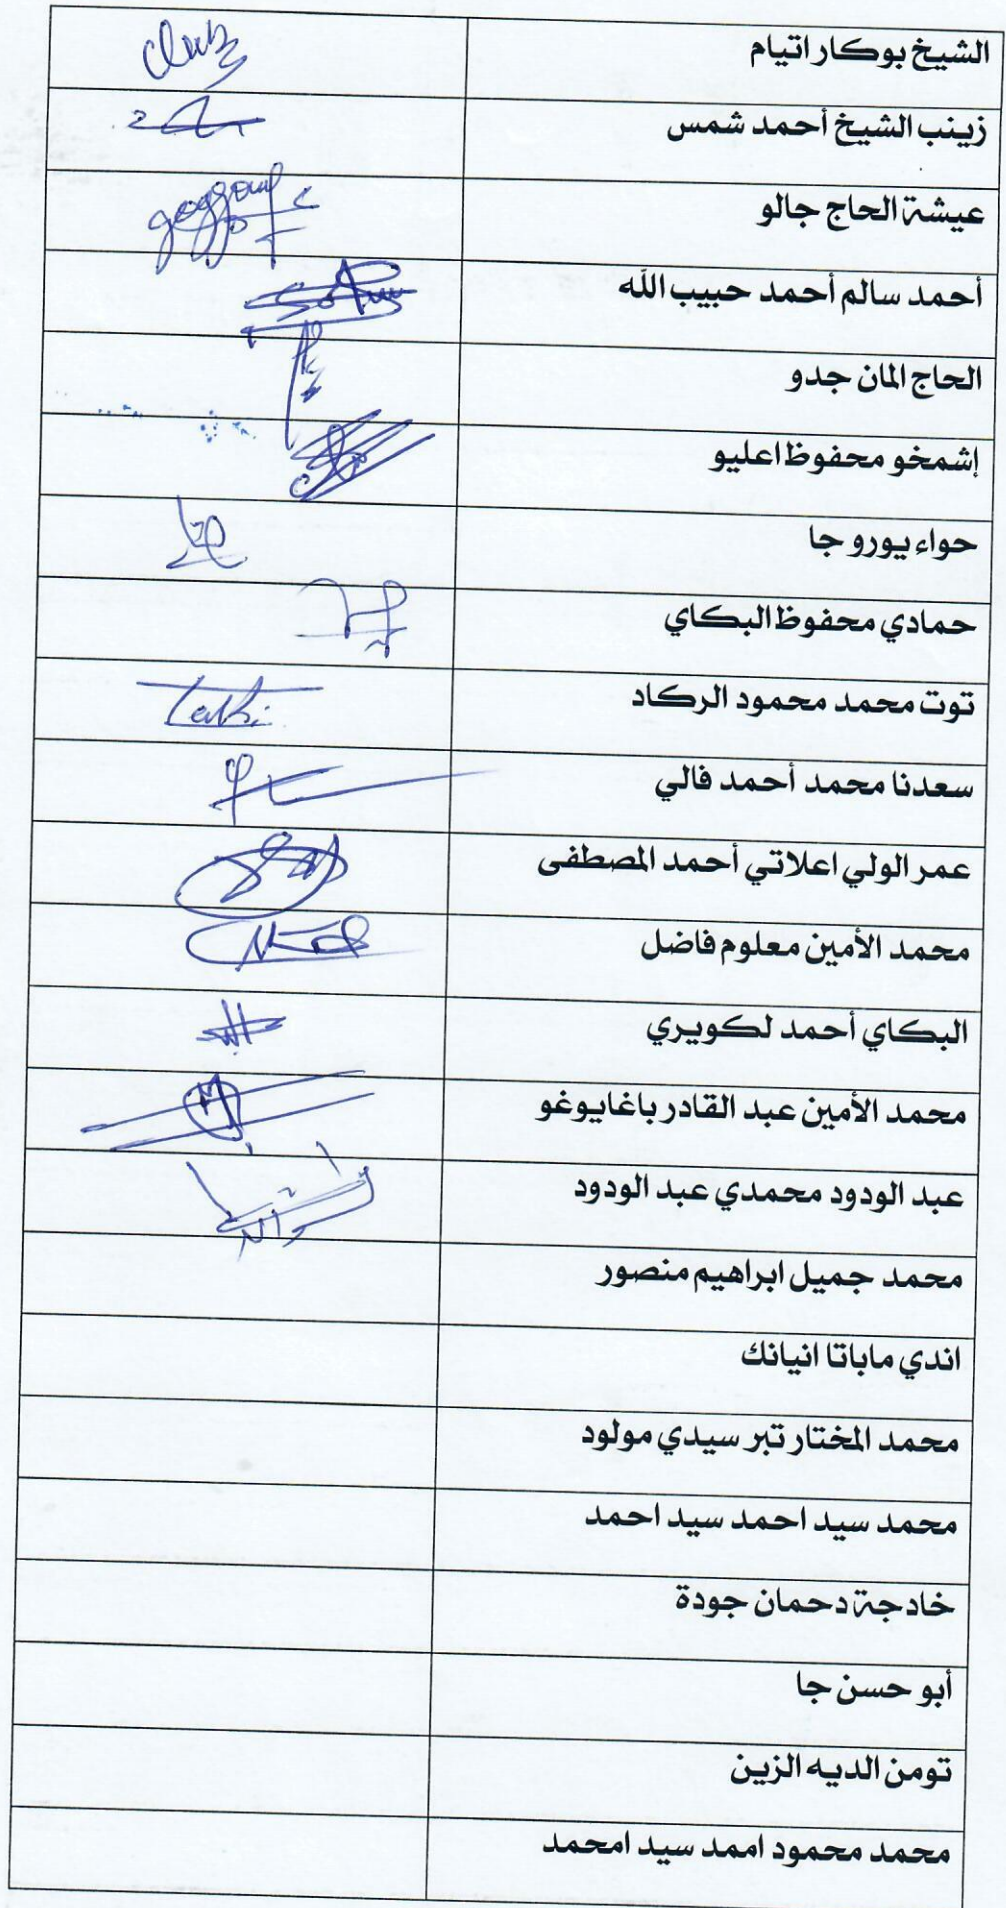 الشيخ بوكار اتيام
زينب الشيخ أحمد شمس
عيشة الحاج جالو
أحمد سالم أحمد حبيب الله
الحاج المان جدو
إشمخو محفوظ اعليو
حواء يورو جا
حمادي محفوظ البكاي
توت محمد محمود الركاد
Taki
سعدنا محمد أحمد فالي
عمر الولي اعلاتي أحمد المصطفى
محمد الأمين معلوم فاضل
البكاي أحمد لكويري
محمد الأمين عبد القادر باغايوغو
عبد الودود محمدي عبد الودود
محمد جميل ابراهيم منصور
اندي ماباتا انيانك
محمد المختار تبر سيدي مولود
محمد سيد احمد سيد احمد
خادجة دحمان جودة
أبو حسن جا
تومن الديه الزين
محمد محمود اممد سيد امحمد